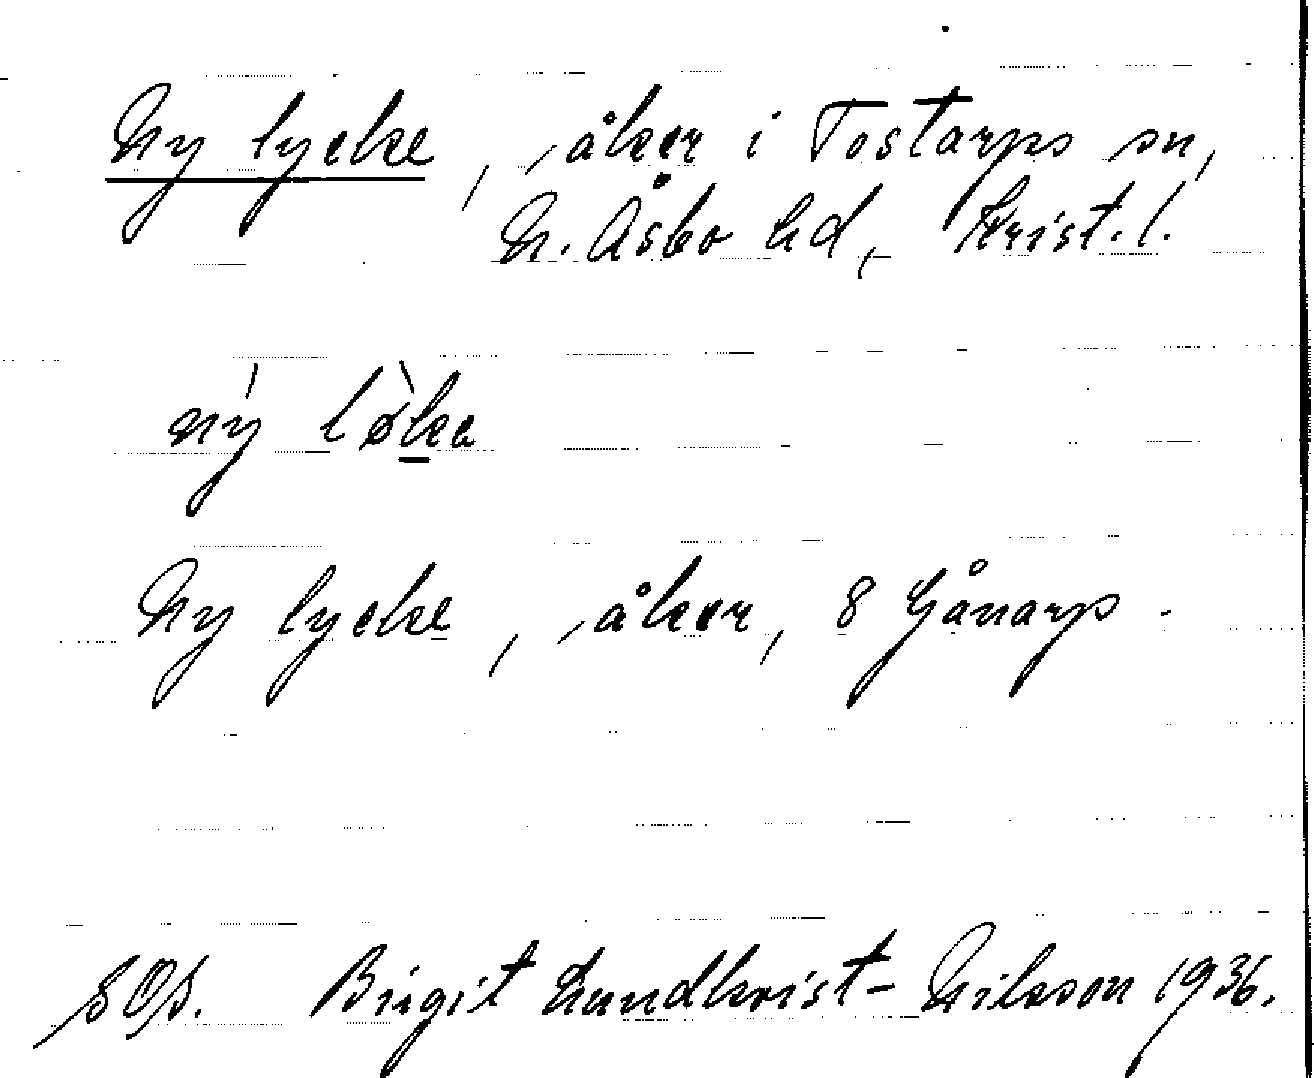 Ny lycke, åker i Tostarps sn,
N. Åsbo hd, Krist. l.
ný lø̀ka
Ny lycke, åker, 8 Gånarp.
SOA. Birgit Lundkvist-Nilsson 1936.